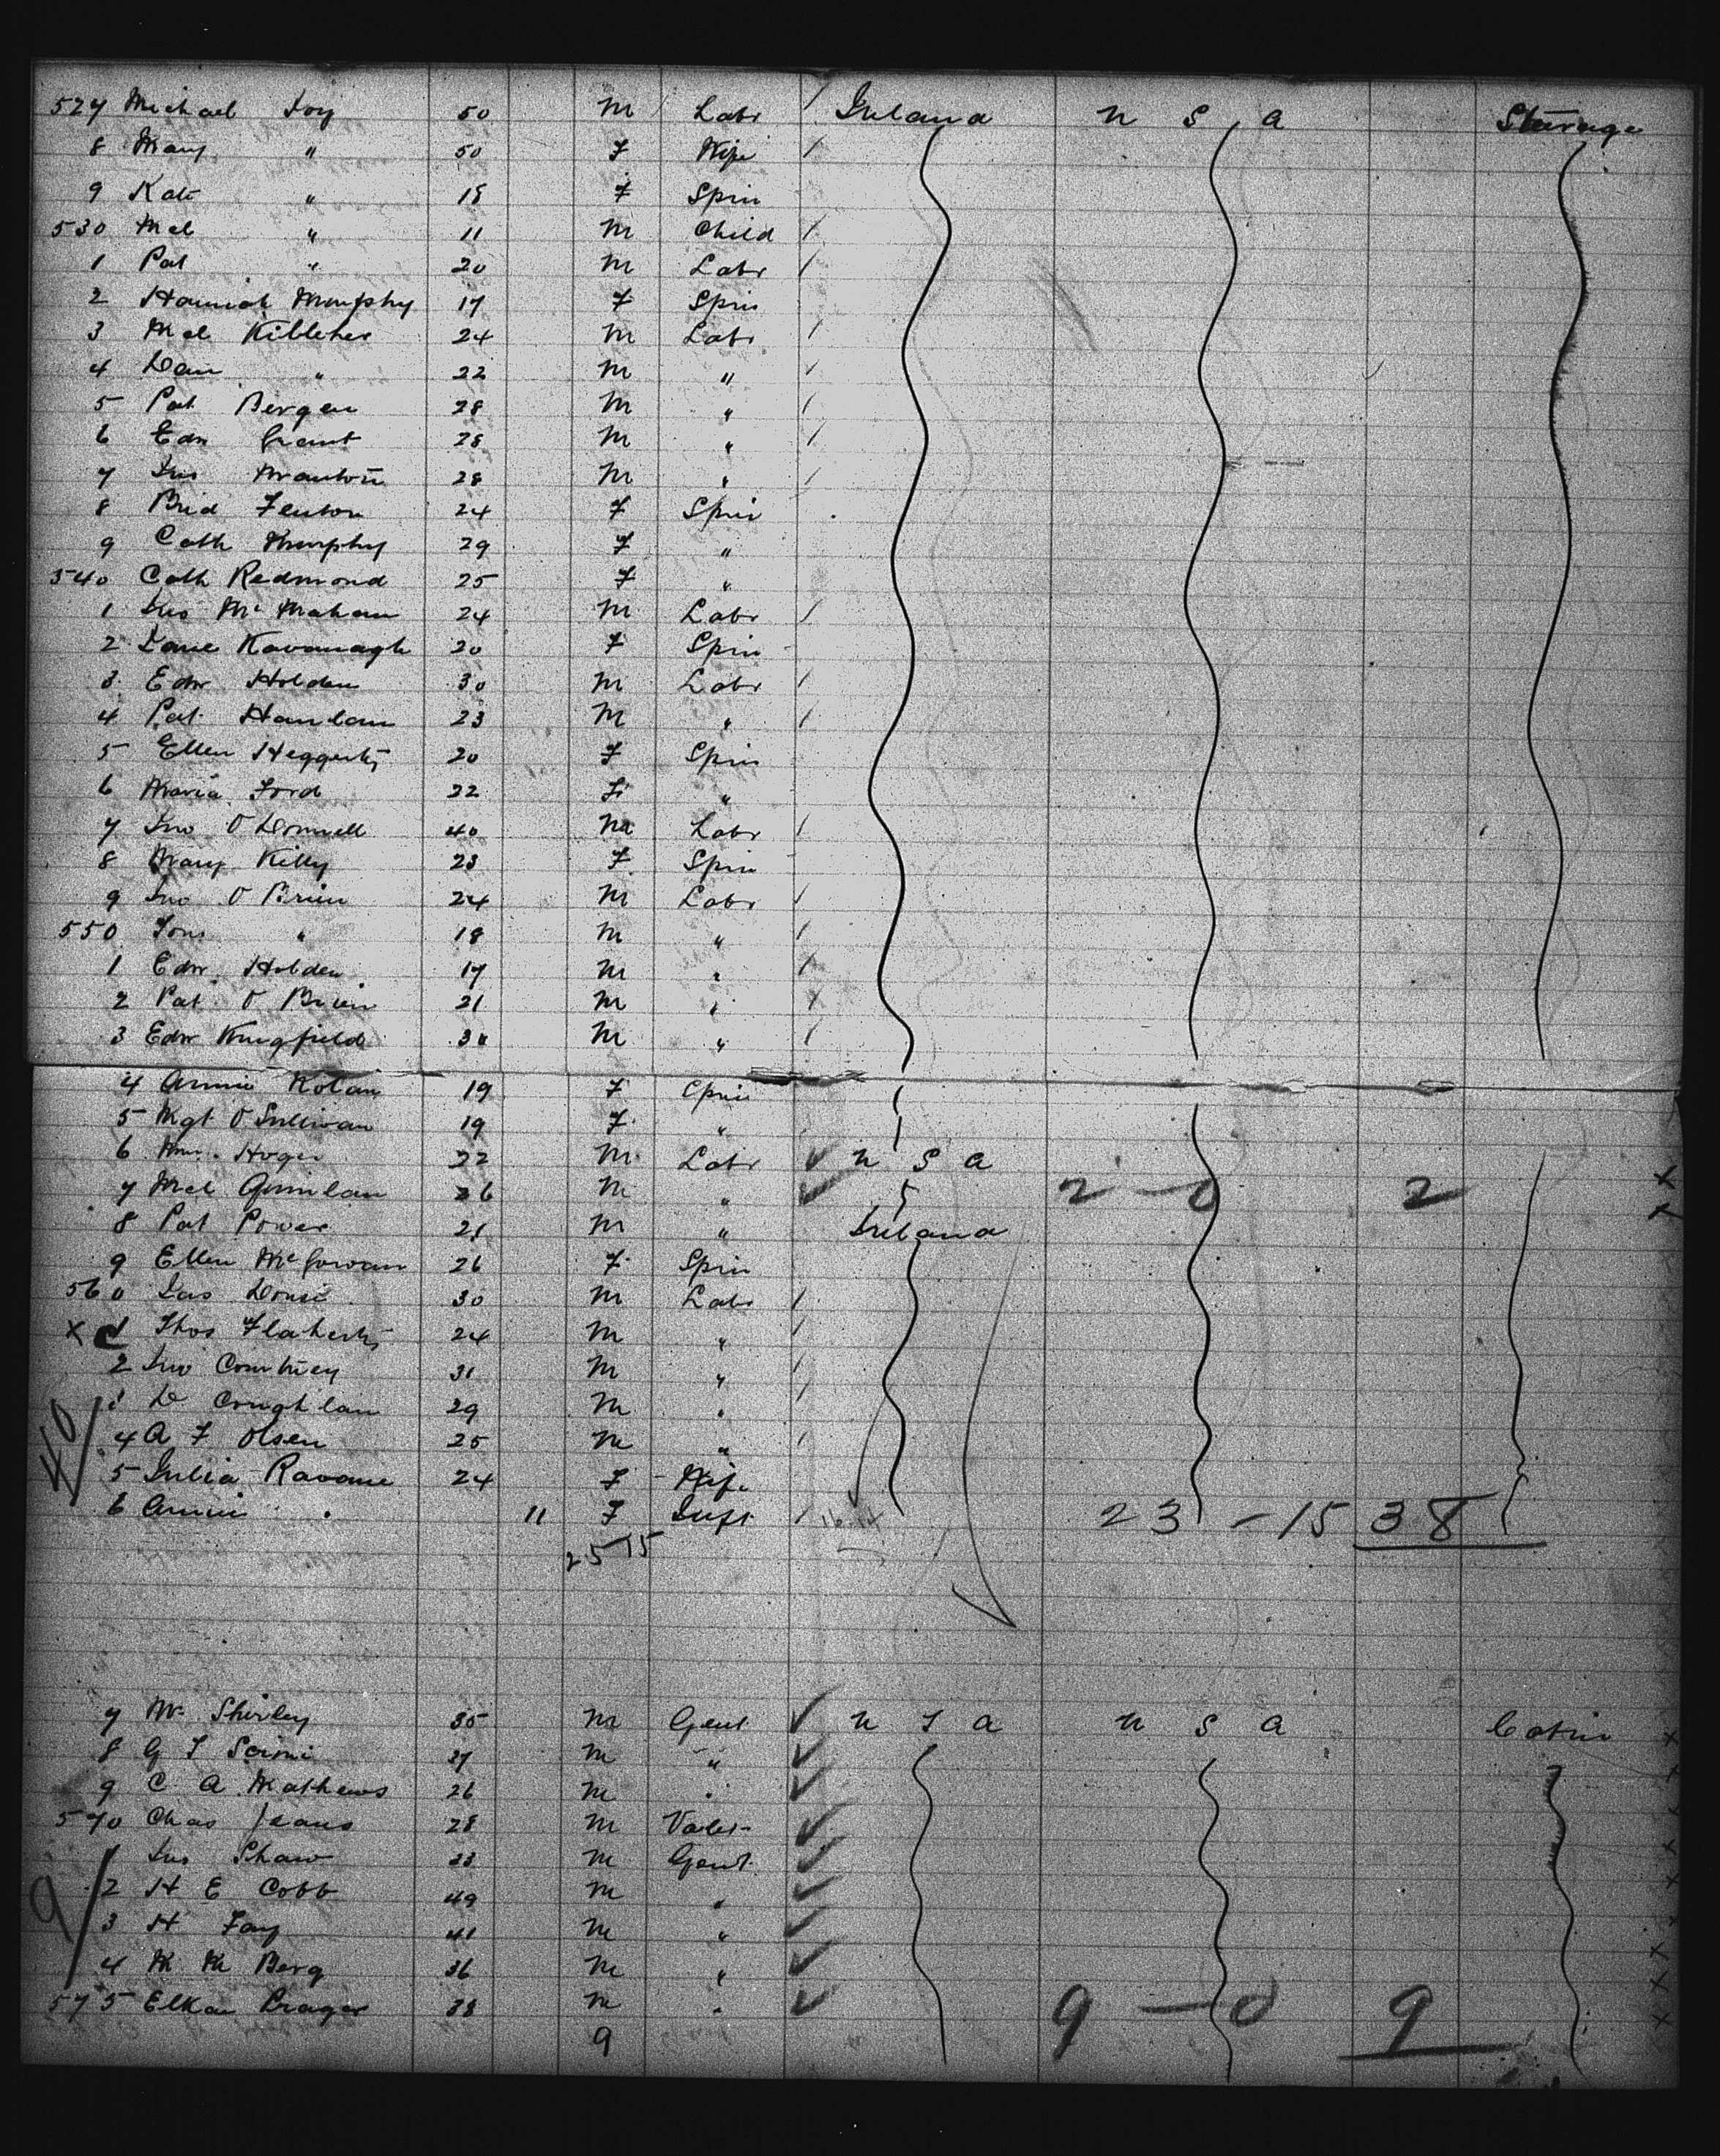 527 Michael Joy 50 M Labr Ireland U S A Steerage
8 Mary " 50 F Wife
9 Kate " 18 F Spin
530 Mcl " 11 M Child
1 Pat " 20 M Labr
2 Hannah Murphy 17 F Spin
3 Mcl Killeher 24 M Labr
4 Dan " 22 M "
5 Pat Bergen 28 M "
6 Edw Grant 28 M "
7 Jno 28 M "
8 Brid Fenton 24 F Spin
9 Cath Murphy 29 F "
540 Cath Redmond 25 F "
1 Jas McMahon 24 M Labr
2 Jane Kavanagh 20 F Spin
3 Edw Holden 30 M Labr
4 Pat Hanlan 23 M "
5 Ellen Heggerty 20 F Spin
6 Maria Ford 22 F "
7 Jno O Donnell 40 M Labr
8 Mary Kelly 23 F Spin
9 Jno O Brien 24 M Labr
550 " 18 M "
1 Edw Holden 17 M "
2 Pat O Brien 21 M "
3 Edw Kingfield M "
4 Annie 19 F Spin
5 Mgt O Sullivan 19 F "
6 22 M Labr U S A
7 Mcl Quinlan 26 M " 2 - 0 2 X
8 Pat Power 21 M " Ireland
9 Ellen McGowan 26 F Spin
560 Jas 30 M Labr
X 1 Thos Flaherty 24 M "
2 Jno Courtney 31 M "
3 D Coughlan 29 M "
40
4 A F Olsen 25 M "
5 Julia 24 F Wife
6 Annie " 11 F Inft 23 - 15 38
25 15
7 Mr Shirley 35 M Gent U S A U S A Cabin X
8 G 27 M "
9 C A Mathews 26 M "
570 Chas Jeans 28 M Valet X
1 Jno Shaw 33 M Gent X
2 H E Cobb 49 M " X
9
3 H Fay 41 M "
4 M M Berg 36 M " X
575 Elkan Prager 38 M " 9 - 0 9 X
9